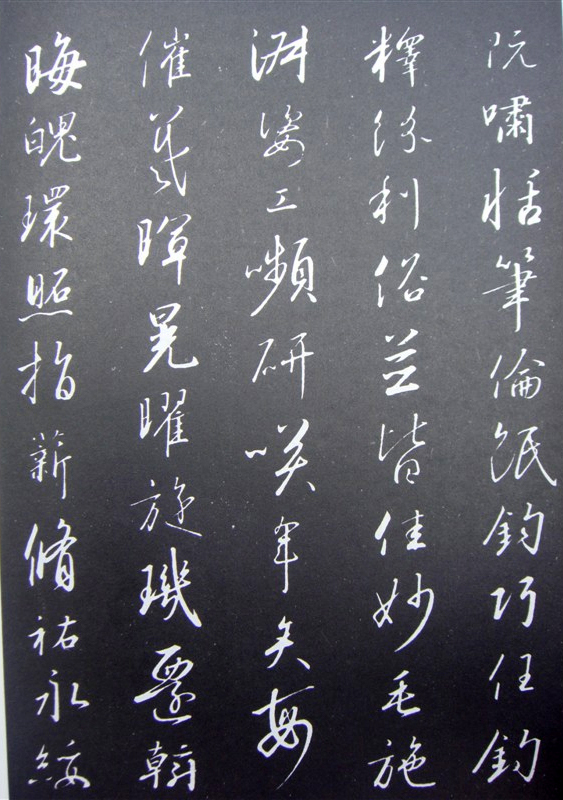 阮嘯恬筆倫紙鈞巧任釣
釋紛利俗並皆佳妙毛施
淑姿工嚬研咲年矢每
催羲暉晃曜旋璣懸斡
晦魄環照指薪脩祐永綏